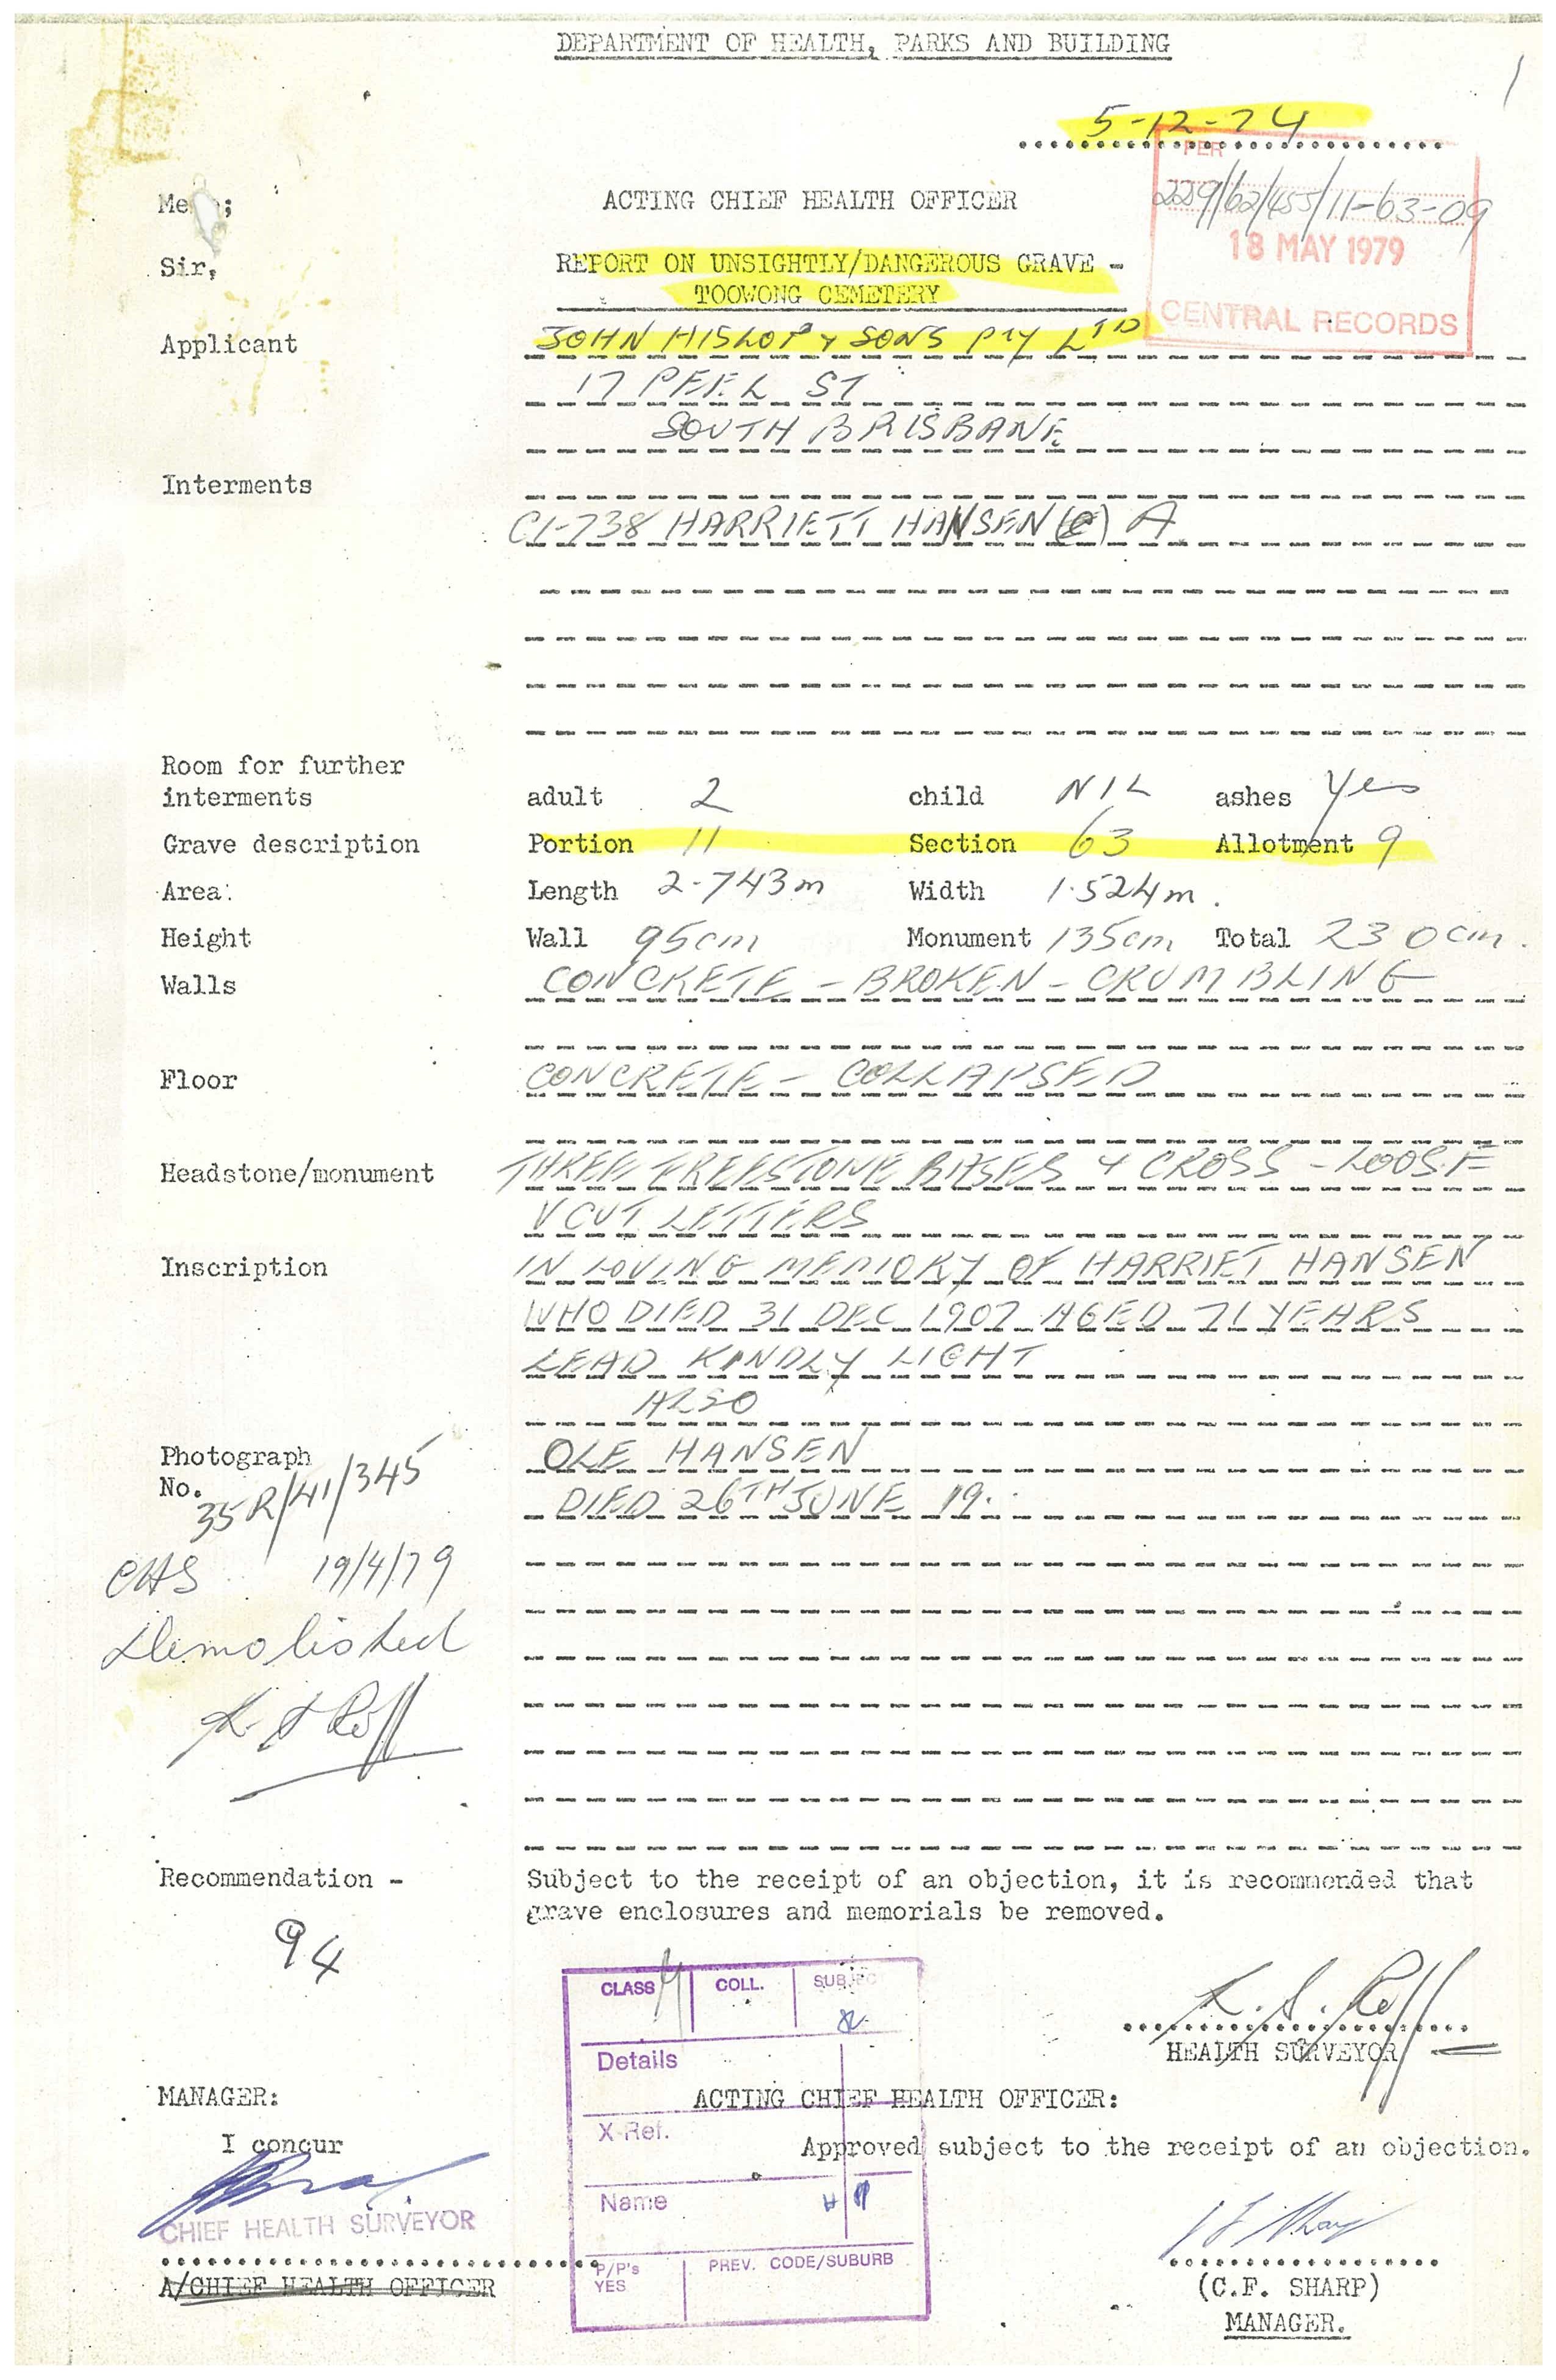 DEPARTMENT OF HEALTH, PARKS AND BUILDING
5-12-74
PER
229/62/455/11-63-09
18 MAY 1979
CENTRAL RECORDS
ACTING CHIEF HEALTH OFFICER
Sir,
REPORT ON UNSIGHTLY/DANGEROUS GRAVE -
TOOWONG CEMETERY
Applicant JOHN HISLOP & SONS PTY LTD
17 PEEL ST
SOUTH BRISBANE
Interments
C1-738 HARRIETT HANSEN (E) A
Room for further
interments adult 2 child NIL ashes Yes
Grave description Portion 11 Section 63 Allotment 9
Area: Length 2.743m Width 1.524m.
Height Wall 95cm Monument 135cm Total 230cm.
Walls CONCRETE - BROKEN - CRUMBLING
Floor CONCRETE - COLLAPSED
Headstone/monument THREE FREESTONE BASES & CROSS - LOOSE
V CUT LETTERS
Inscription IN LOVING MEMORY OF HARRIET HANSEN
WHO DIED 31 DEC 1907 AGED 71 YEARS
LEAD KINDLY LIGHT
ALSO
Photograph OLE HANSEN
No. 35R/41/345
DIED 26TH JUNE 19..
19/4/79
Demolished
Recommendation - Subject to the receipt of an objection, it is recommended that
grave enclosures and memorials be removed.
94
K. S. Roff
HEALTH SURVEYOR
CLASS COLL. SUBJEC
Details
MANAGER: ACTING CHIEF HEALTH OFFICER:
X-Ref.
I concur Approved subject to the receipt of an objection.
Name
CHIEF HEALTH SURVEYOR
P/P's PREV. CODE/SUBURB
YES
A/CHIEF HEALTH OFFICER
(C.F. SHARP)
MANAGER.